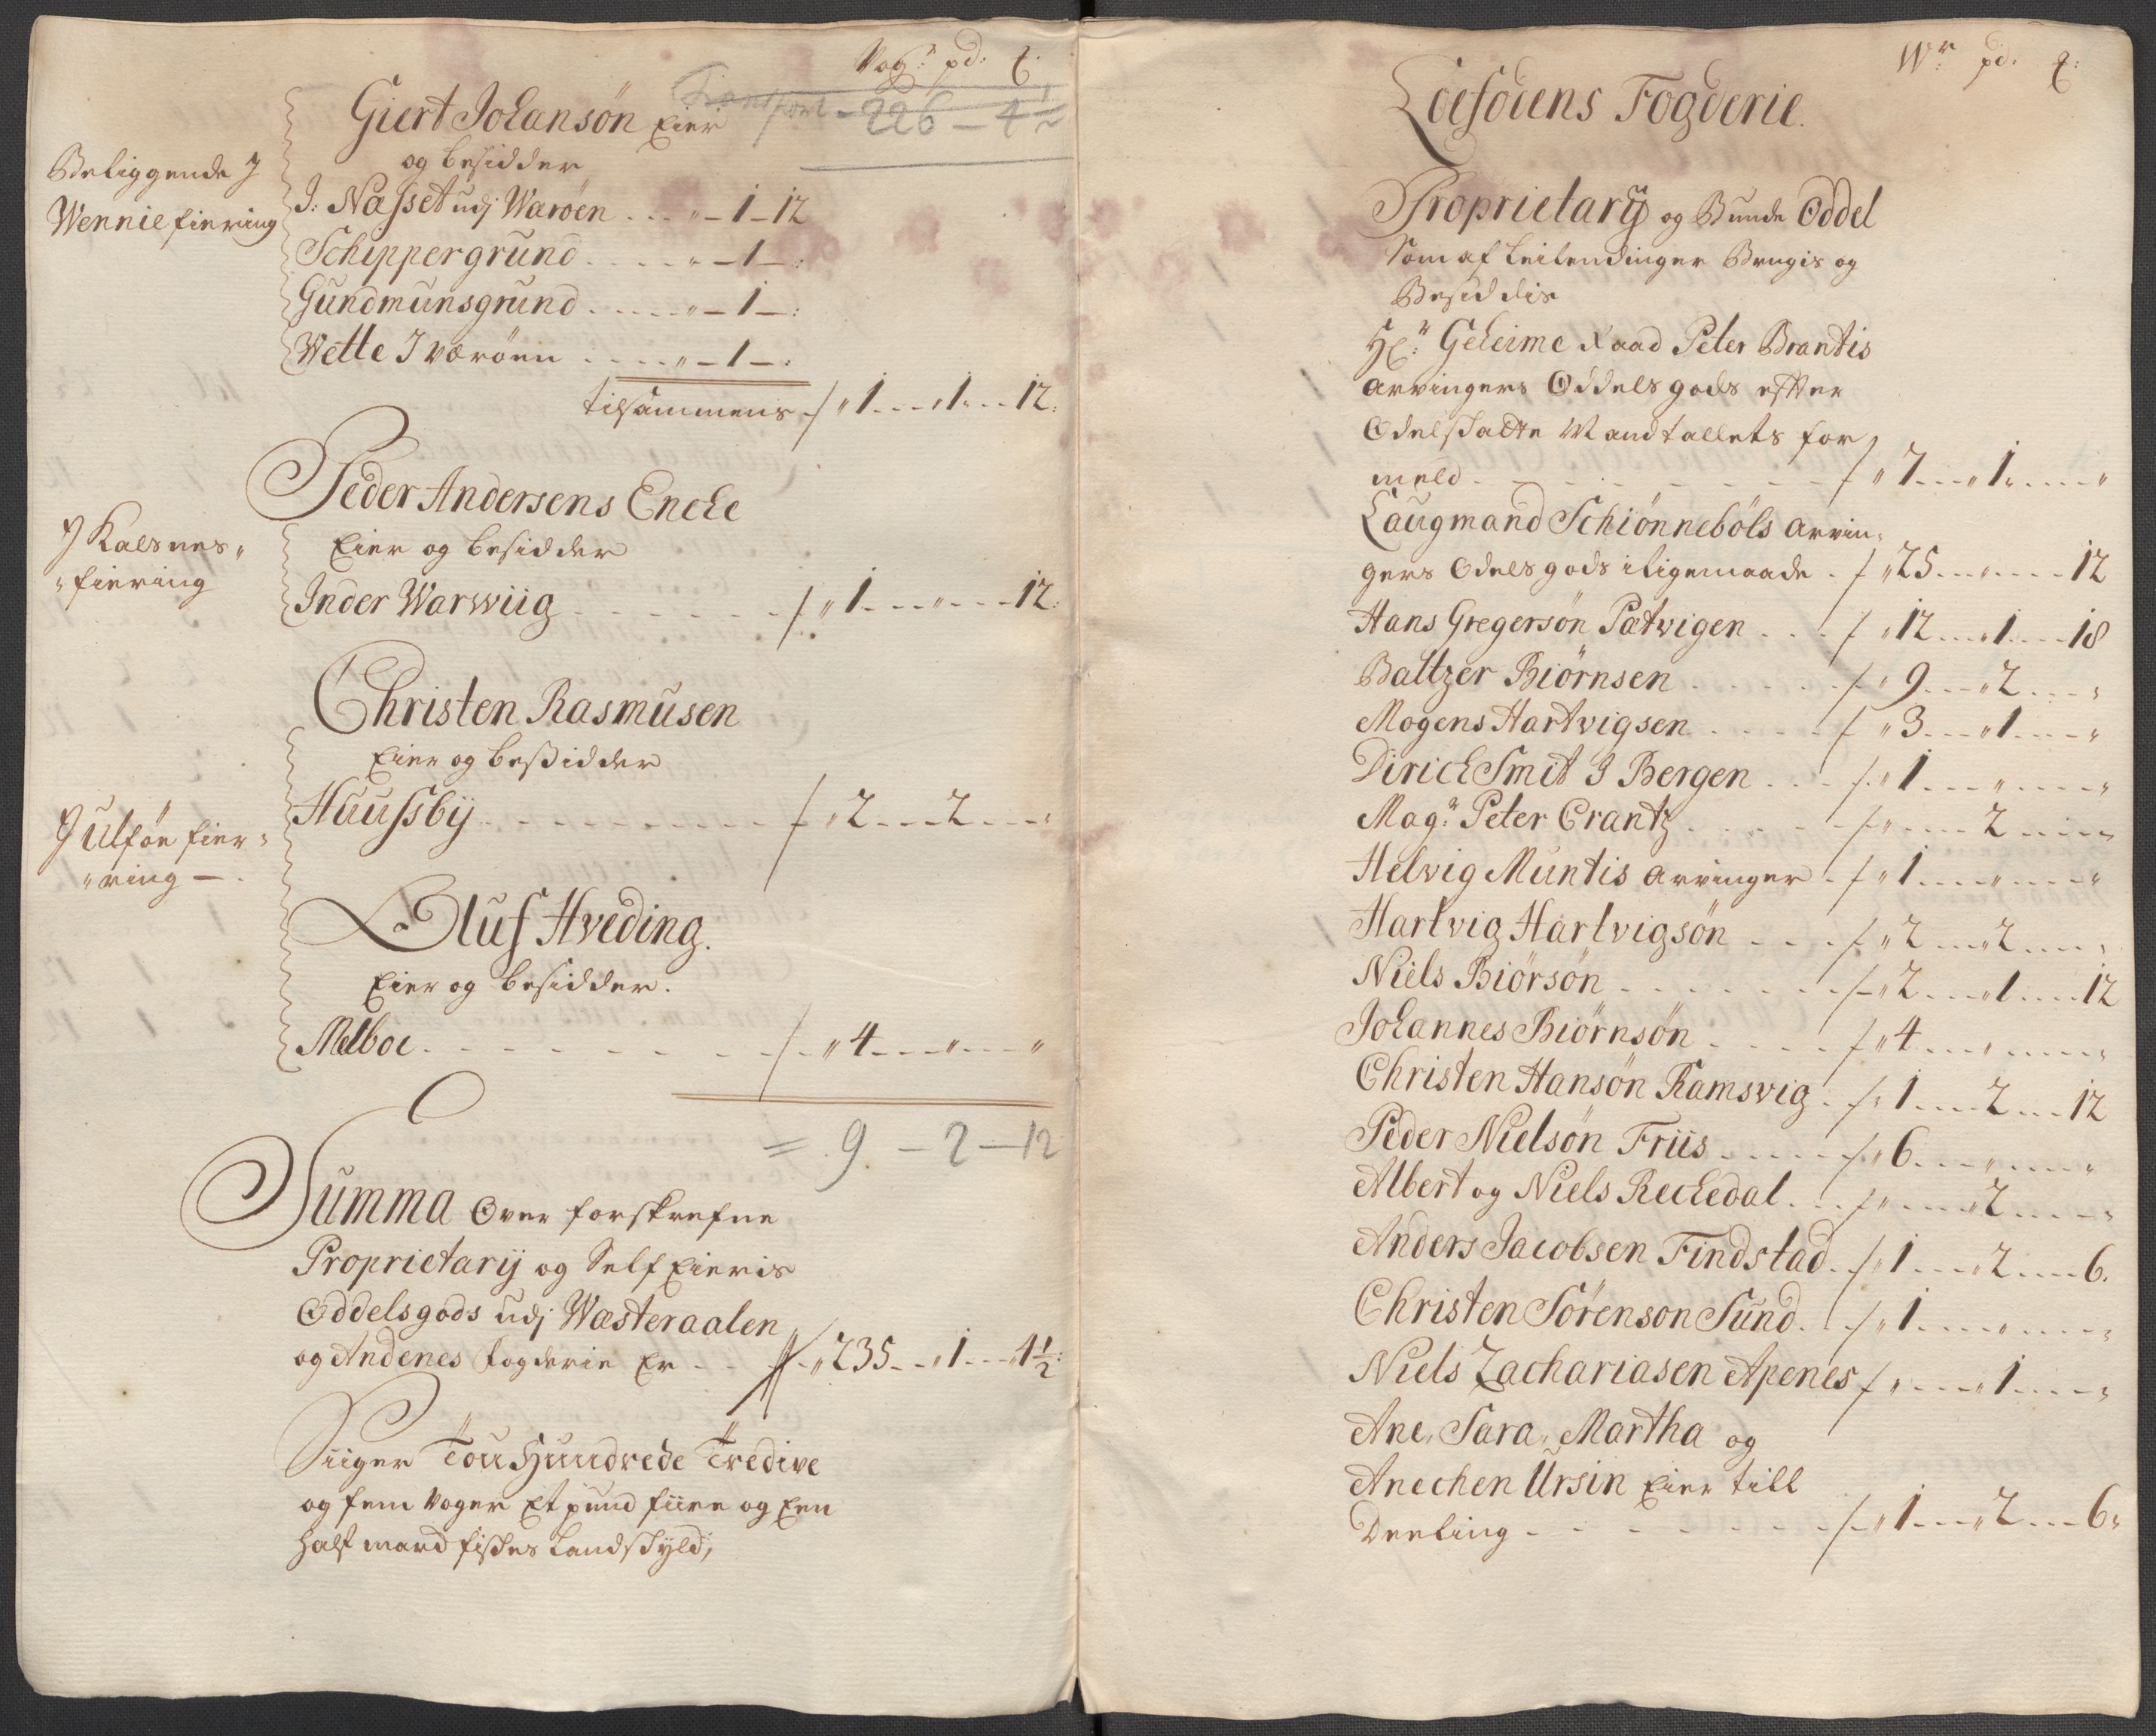 Vog: pd: ℔:
Transport - 226 - 4 1/2
Giert Johansön Eier
og besidder
Beliggende J
Wennie fiering
J: Nasset udj Waröen . . . " - 1 - 12
Schippergrund . . . . " - 1 - :
Gundmunsgrund . . . . " - 1 - :
Wette J væröen . . . . " - 1 - :
tilsammens -/ " 1 . . . " 1 . . . 12:
Peder Andersens Encke
Eier og besidder
J Kalsnes"
"fiering
Inder Warwiig . . . . . . /. " 1 . . . " . . . 12:
Christen Rasmusen
Eier og beßidder
Huussbÿ . . . . . . . . / " 2 . . . 2 . . . "
J Ulföe fier"
"ring -
Oluf Hveding.
Eier og besidder.
Melboe . . . . . . . . /. " 4 . . . " . . . "
= 9 - 2 - 12
Summa Over forskrefne
Proprietarij og Self Eieris
Oddelsgods udj Wæsteraalen
og Andenes fogderie Er . . . " 235 . . " 1 . . . " 4 1/2:
Siiger Tou Hundrede Tredive
og fem Voger Et pund fiire og Een
half mard fiskes Landskyld,
Wr: pd: ℔:
Loefodens Fogderie.
Proprietarÿ og Bunde Oddel
Som af Leilendinger Brugis og
Besiddis
Hr: Geheime Raad Peter Brantis
arvingers Oddels gods efter
Odelskatte Mandtallets for
meld . . . . . . . . / " 7 . . . " 1 . . . . "
Laugmand Schiönneböls arvin"
gers Odels gods iligemaade . / " 25 . . . " . . . . 12
Hans Gregersön Pætvigen . . . / " 12 . . . " 1 . . . 18
Baltzer Biörnsen . . . . . . / " 9 . . . " 2 . . . "
Mogens Hartvigsen . . . . . / " 3 . . . " 1 . . . "
Dirich Smit J Bergen . . . /. " 1 . . . " . . . . "
Magr: Peter Crantz . . . . . . / " . . . . 2 . . . . "
Helvig Muntis arvinger . / " 1 . . . . " . . . . "
Hartvig Hartvigsön . . . / " 2 . . . " 2 . . . . "
Niels Biörsön . . . . . . . / " 2 . . . " 1 . . . . 12
Johannes Biörnsön . . . . / " 4 . . . " . . . . "
Christen Hansön Ramsvig . / " 1 . . . . 2 . . . 12
Peder Nielsön Friis . . . . . / " 6 . . . " . . . . "
Albert og Niels Reckedal . . . / " . . . . " 2 . . . . "
Anders Jacobsen Findstad . / " 1 . . . " 2 . . . . 6.
Christen Sörenson Sund . . / " 1 . . . . " . . . . "
Niels Zachariasen Apenes / " . . . . " 1 . . . . "
Ane, Sara, Martha og
Anechen Ursin Eier till
Deeling . . . . . . . . / " 1 . . . " 2 . . . 6"